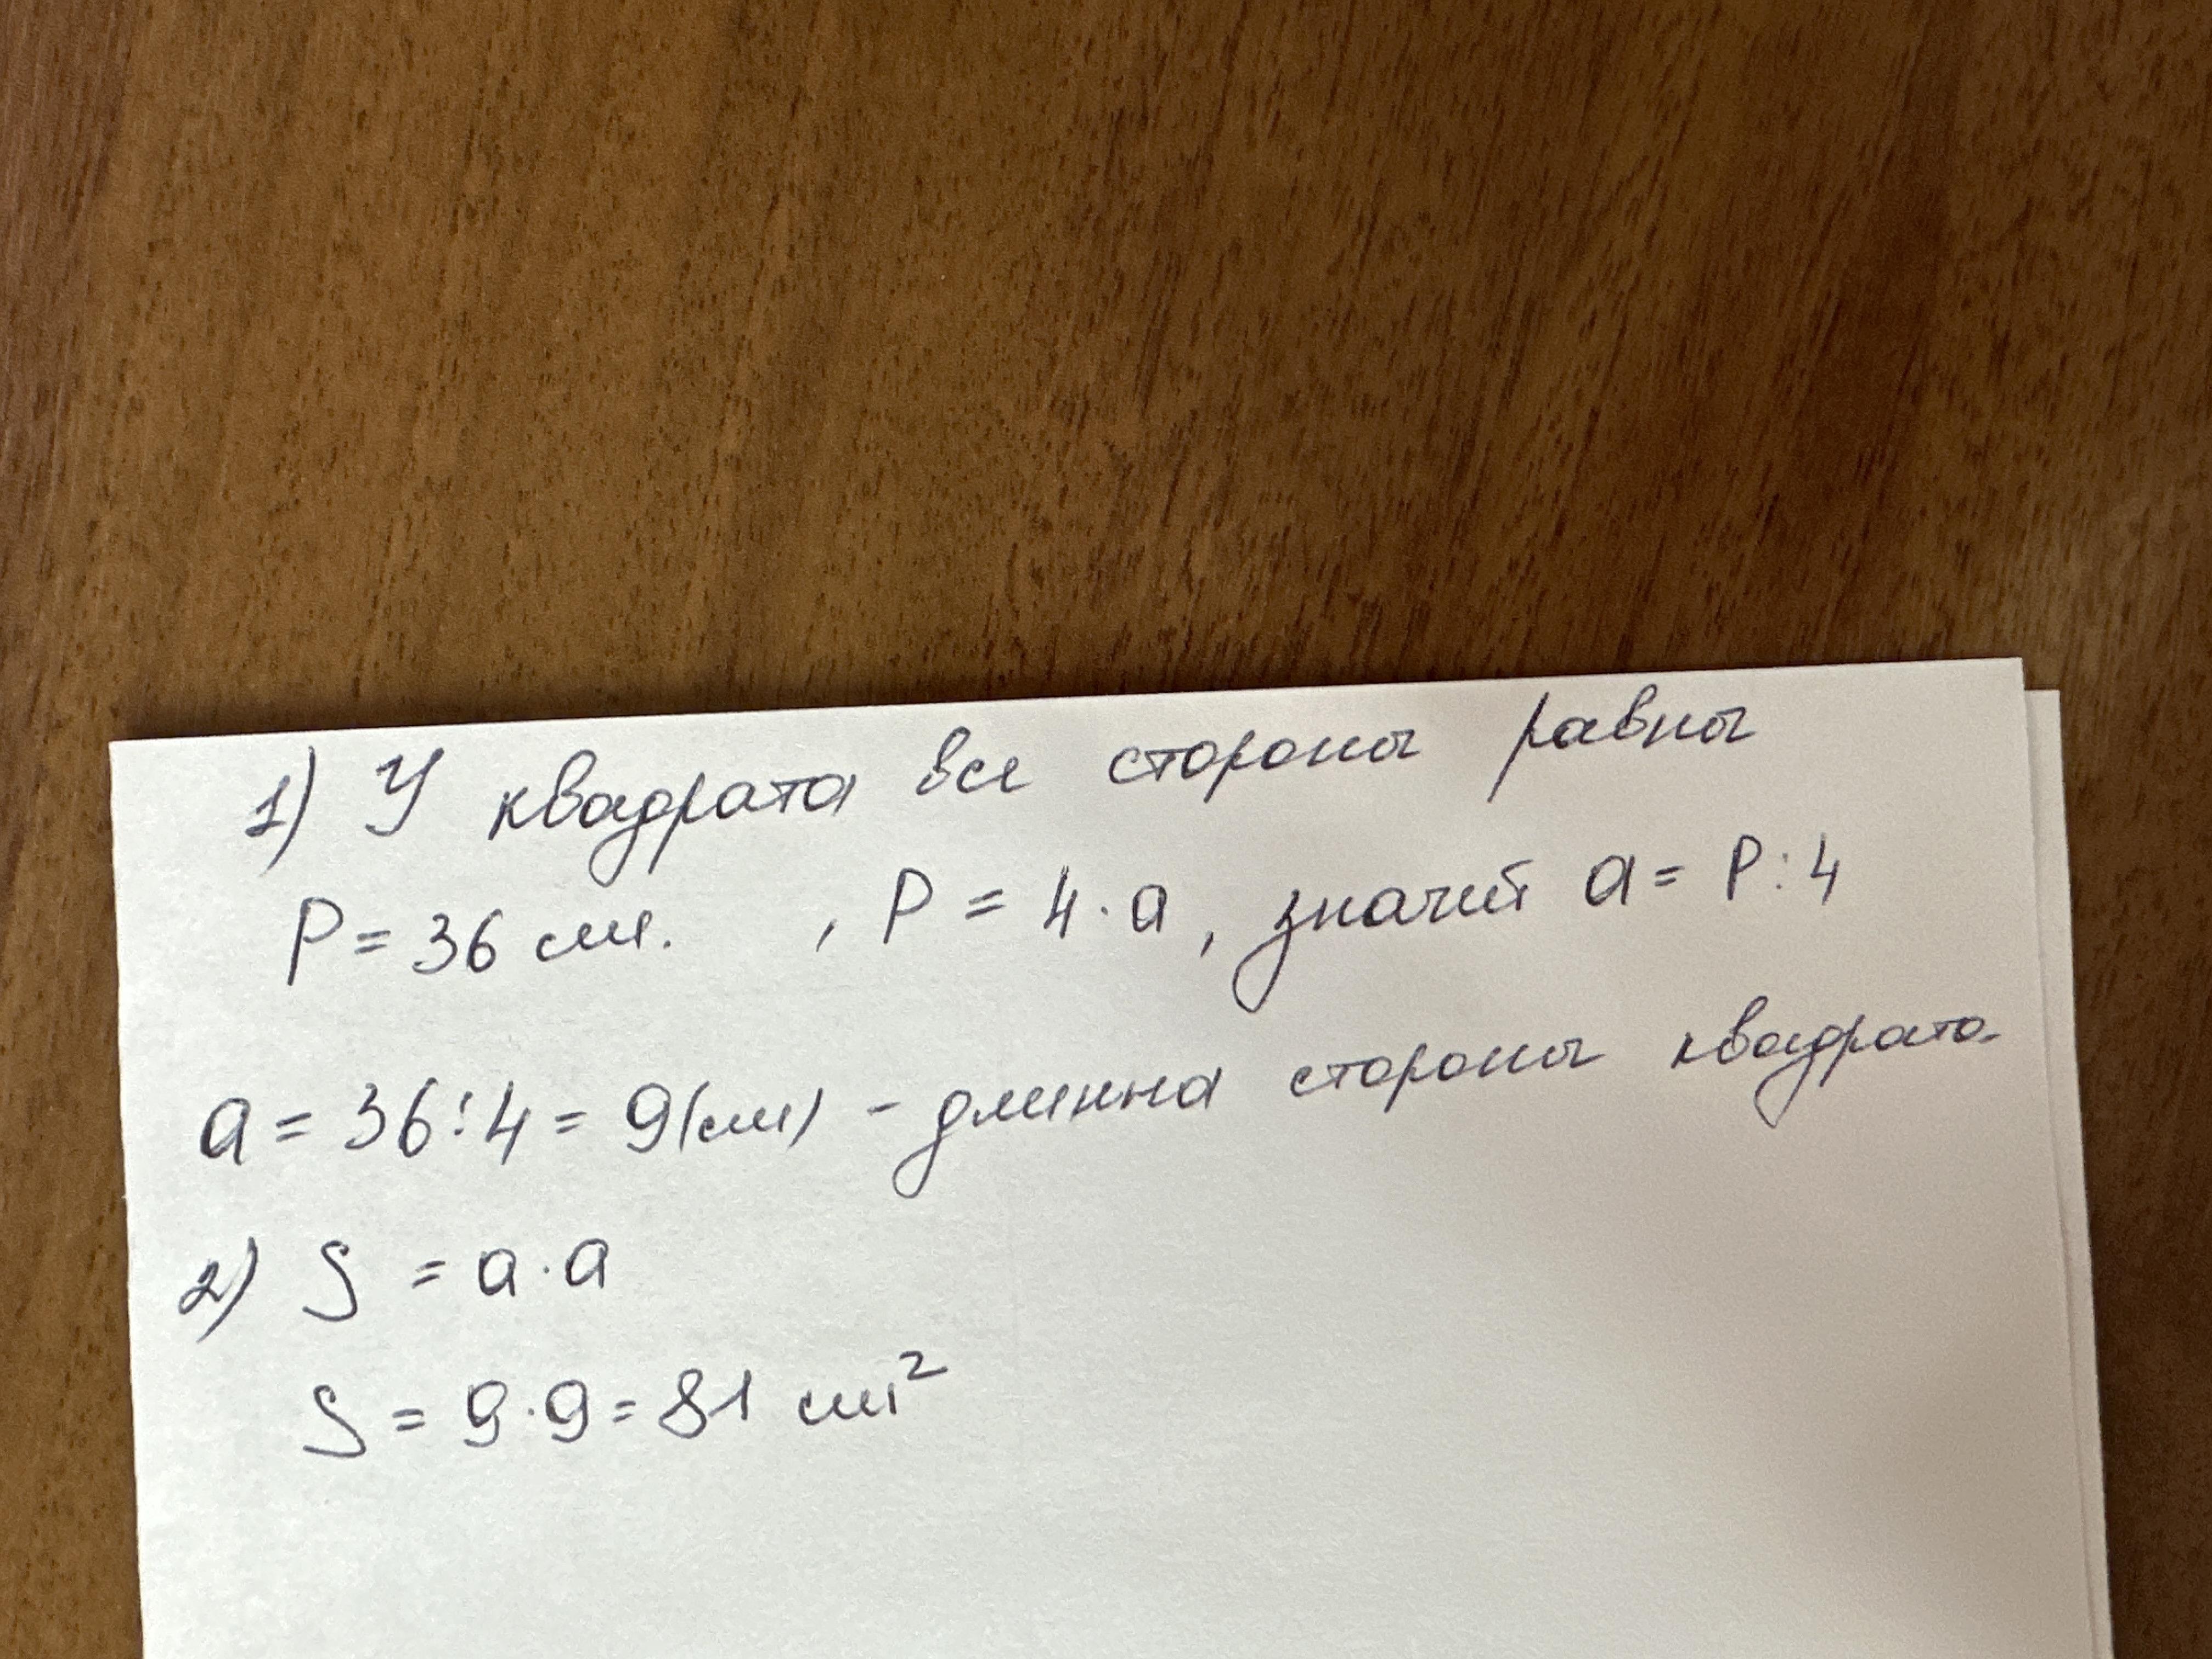 1) У квадрата все стороны равны
P = 36 см. , P = 4 · a, значит a = P : 4
a = 36 : 4 = 9 (см) - длинна стороны квадрата
2) S = a · a
S = 9 · 9 = 81 см²